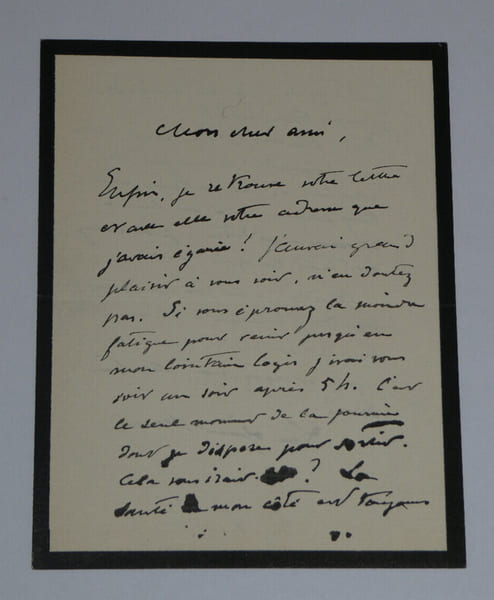 Mon cher ami,
Enfin, je retrouve votre lettre
et avec elle votre adresse que
j'avais égarée ! J'aurai grand
plaisir à vous voir, n'en doutez
pas. Si vous éprouvez la moindre
fatigue pour venir jusqu'en
mon lointain logis j'irai vous
voir un soir après 5 h. C'est
le seul moment de la journée
dont je dispose pour sortir.
Cela vous irait ? La
santé de mon côté est toujours